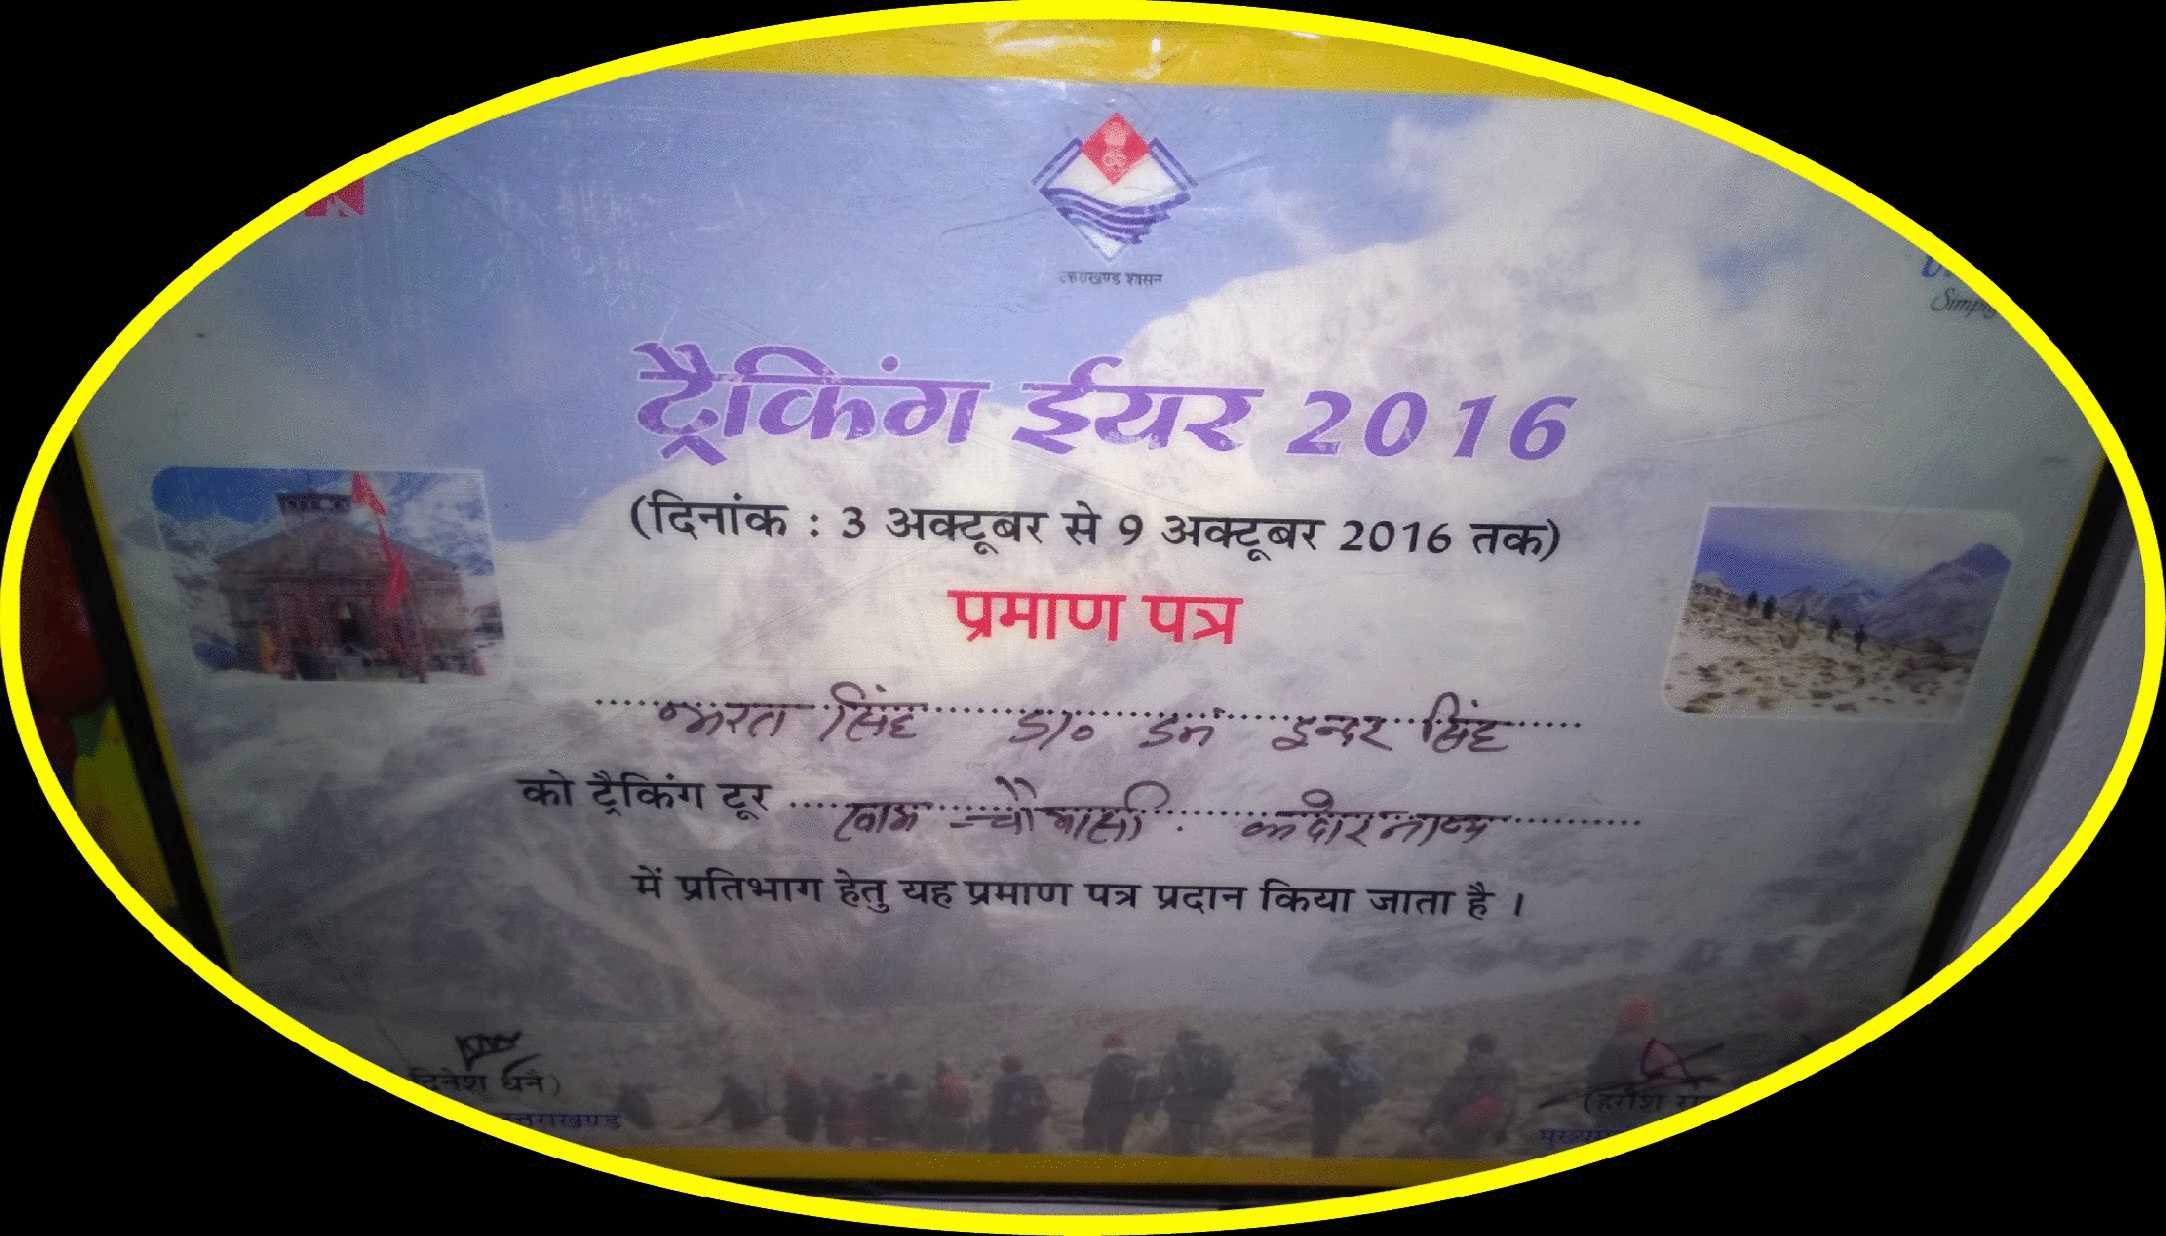 उत्तराखण्ड शासन
Simply
ट्रैकिंग ईयर 2016
(दिनांक : 3 अक्टूबर से 9 अक्टूबर 2016 तक)
प्रमाण पत्र
भरत सिंह S/o इन्दर सिंह
को ट्रैकिंग टूर खाम चौमासी केदारनाथ
में प्रतिभाग हेतु यह प्रमाण पत्र प्रदान किया जाता है ।
दिनेश धनै)
उत्तराखण्ड
(हरीश